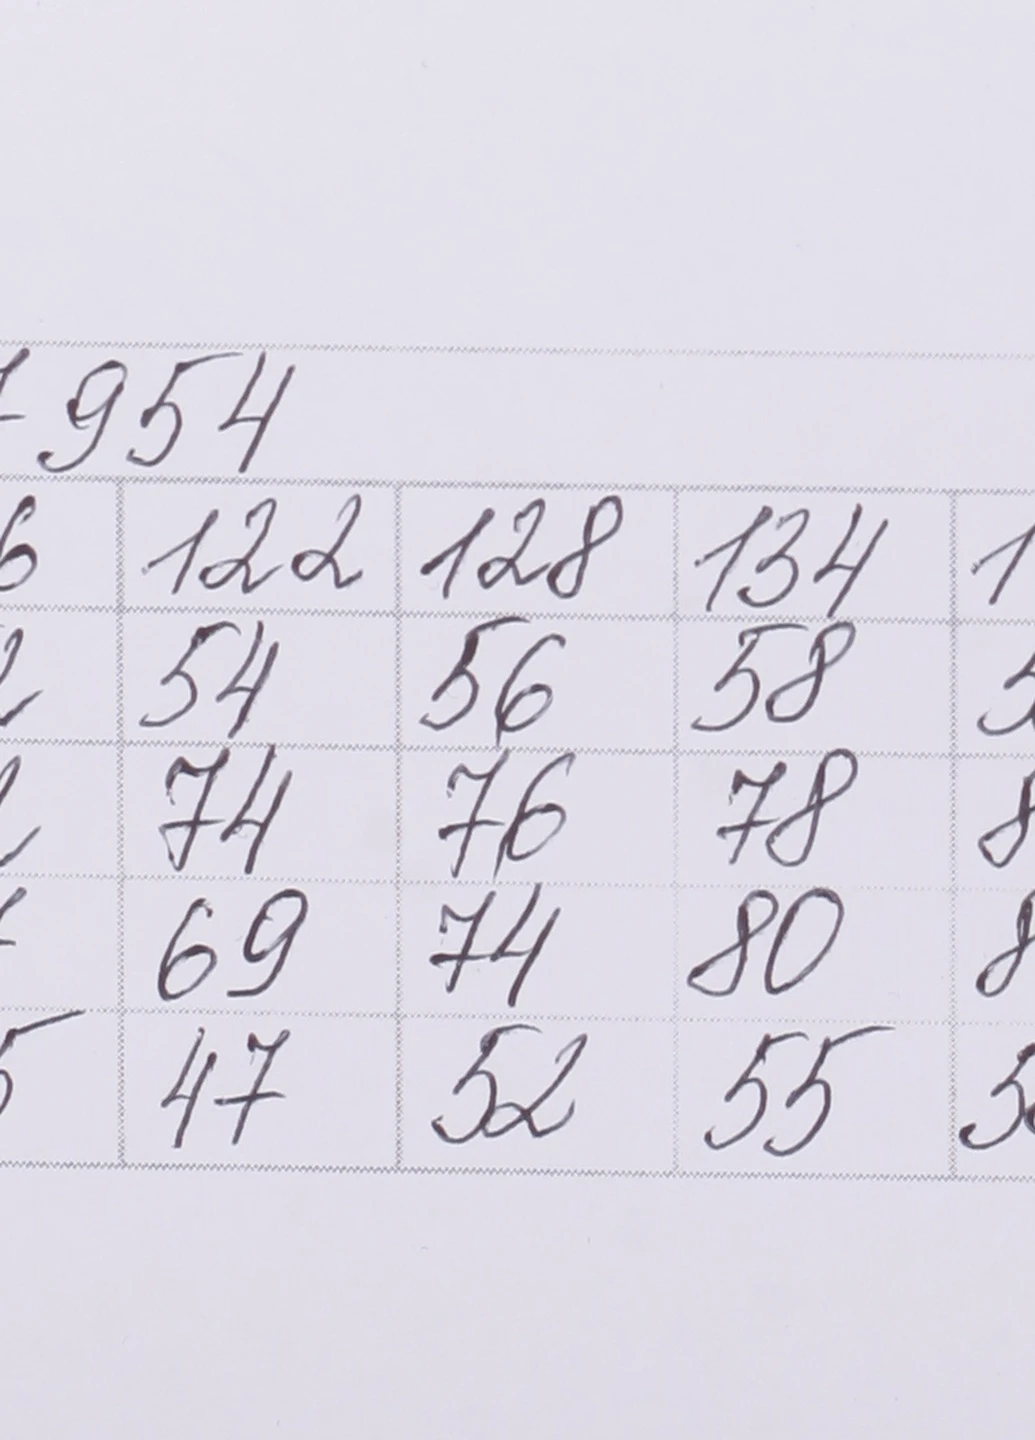 7954
6 122 128 134 1
2 54 56 58 5
2 74 76 78 8
7 69 74 80 8
5 47 52 55 5